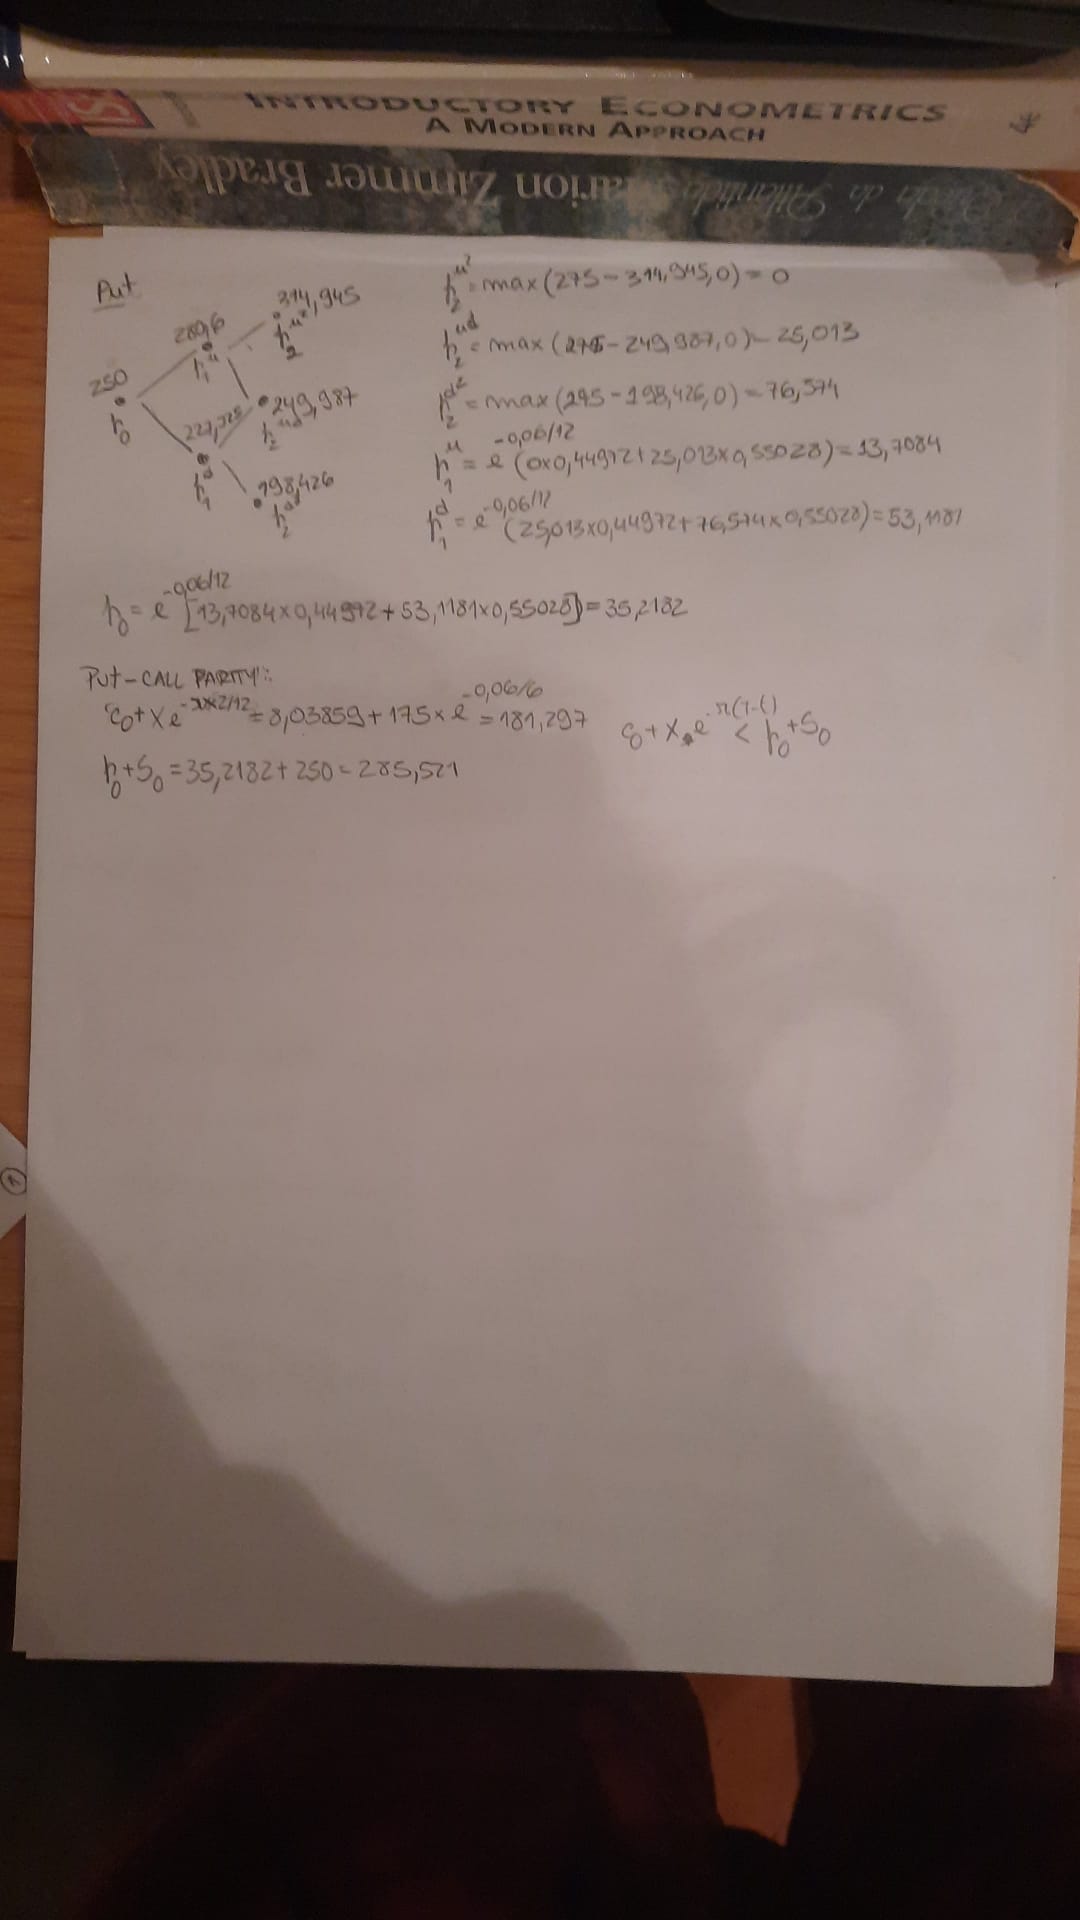 INTRODUCTORY ECONOMETRICS
A MODERN APPROACH
Marion Zimmer Bradley
Put
250
p₀
280,6
p₁ᵘ
314,945
p₂ᵘ²
249,987
p₂ᵘᵈ
p₁ᵈ
198,426
p₂ᵈ²
p₂ᵘ² = max(275-314,945,0) = 0
p₂ᵘᵈ = max(275-249,987,0) = 25,013
p₂ᵈ² = max(275-198,426,0) = 76,574
p₁ᵘ = e^-0,06/12 (0x0,44972+25,013x0,55028) = 13,7084
p₁ᵈ = e^-0,06/12 (25,013x0,44972+76,574x0,55028) = 53,1181
p₀ = e^-0,06/12 [13,7084x0,44972+53,1181x0,55028] = 35,2182
PUT-CALL PARITY:
c₀+Xe^-rx2/12 = 8,03859+175xe^-0,06/6 = 181,297
c₀+X.e^-r(T-t) < p₀+S₀
p₀+S₀ = 35,2182+250 = 285,521